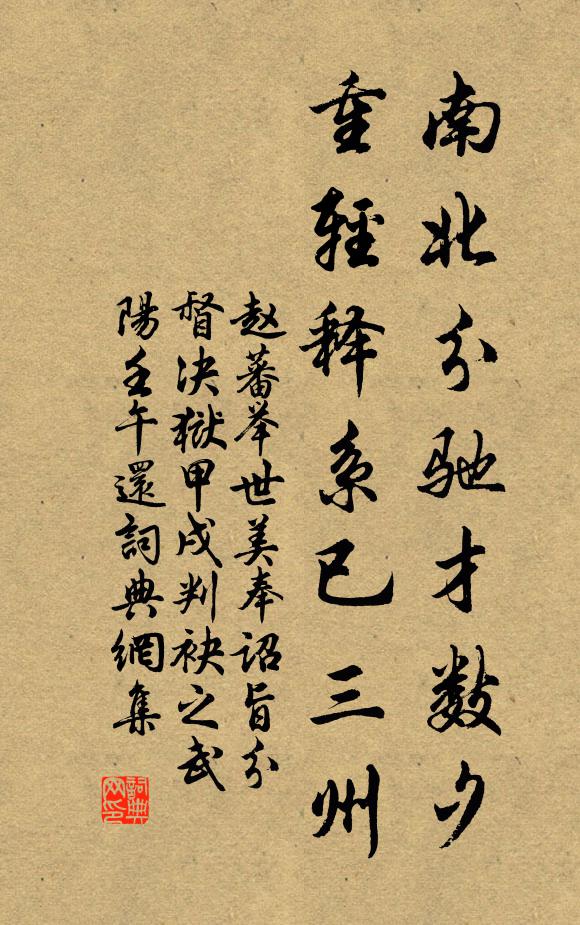 南北分驰才数夕
重輕释系已三州
赵蕃举世美奉詔旨分
督决獄甲戌判袂之武
陽壬午還詞典網集
詞典网印